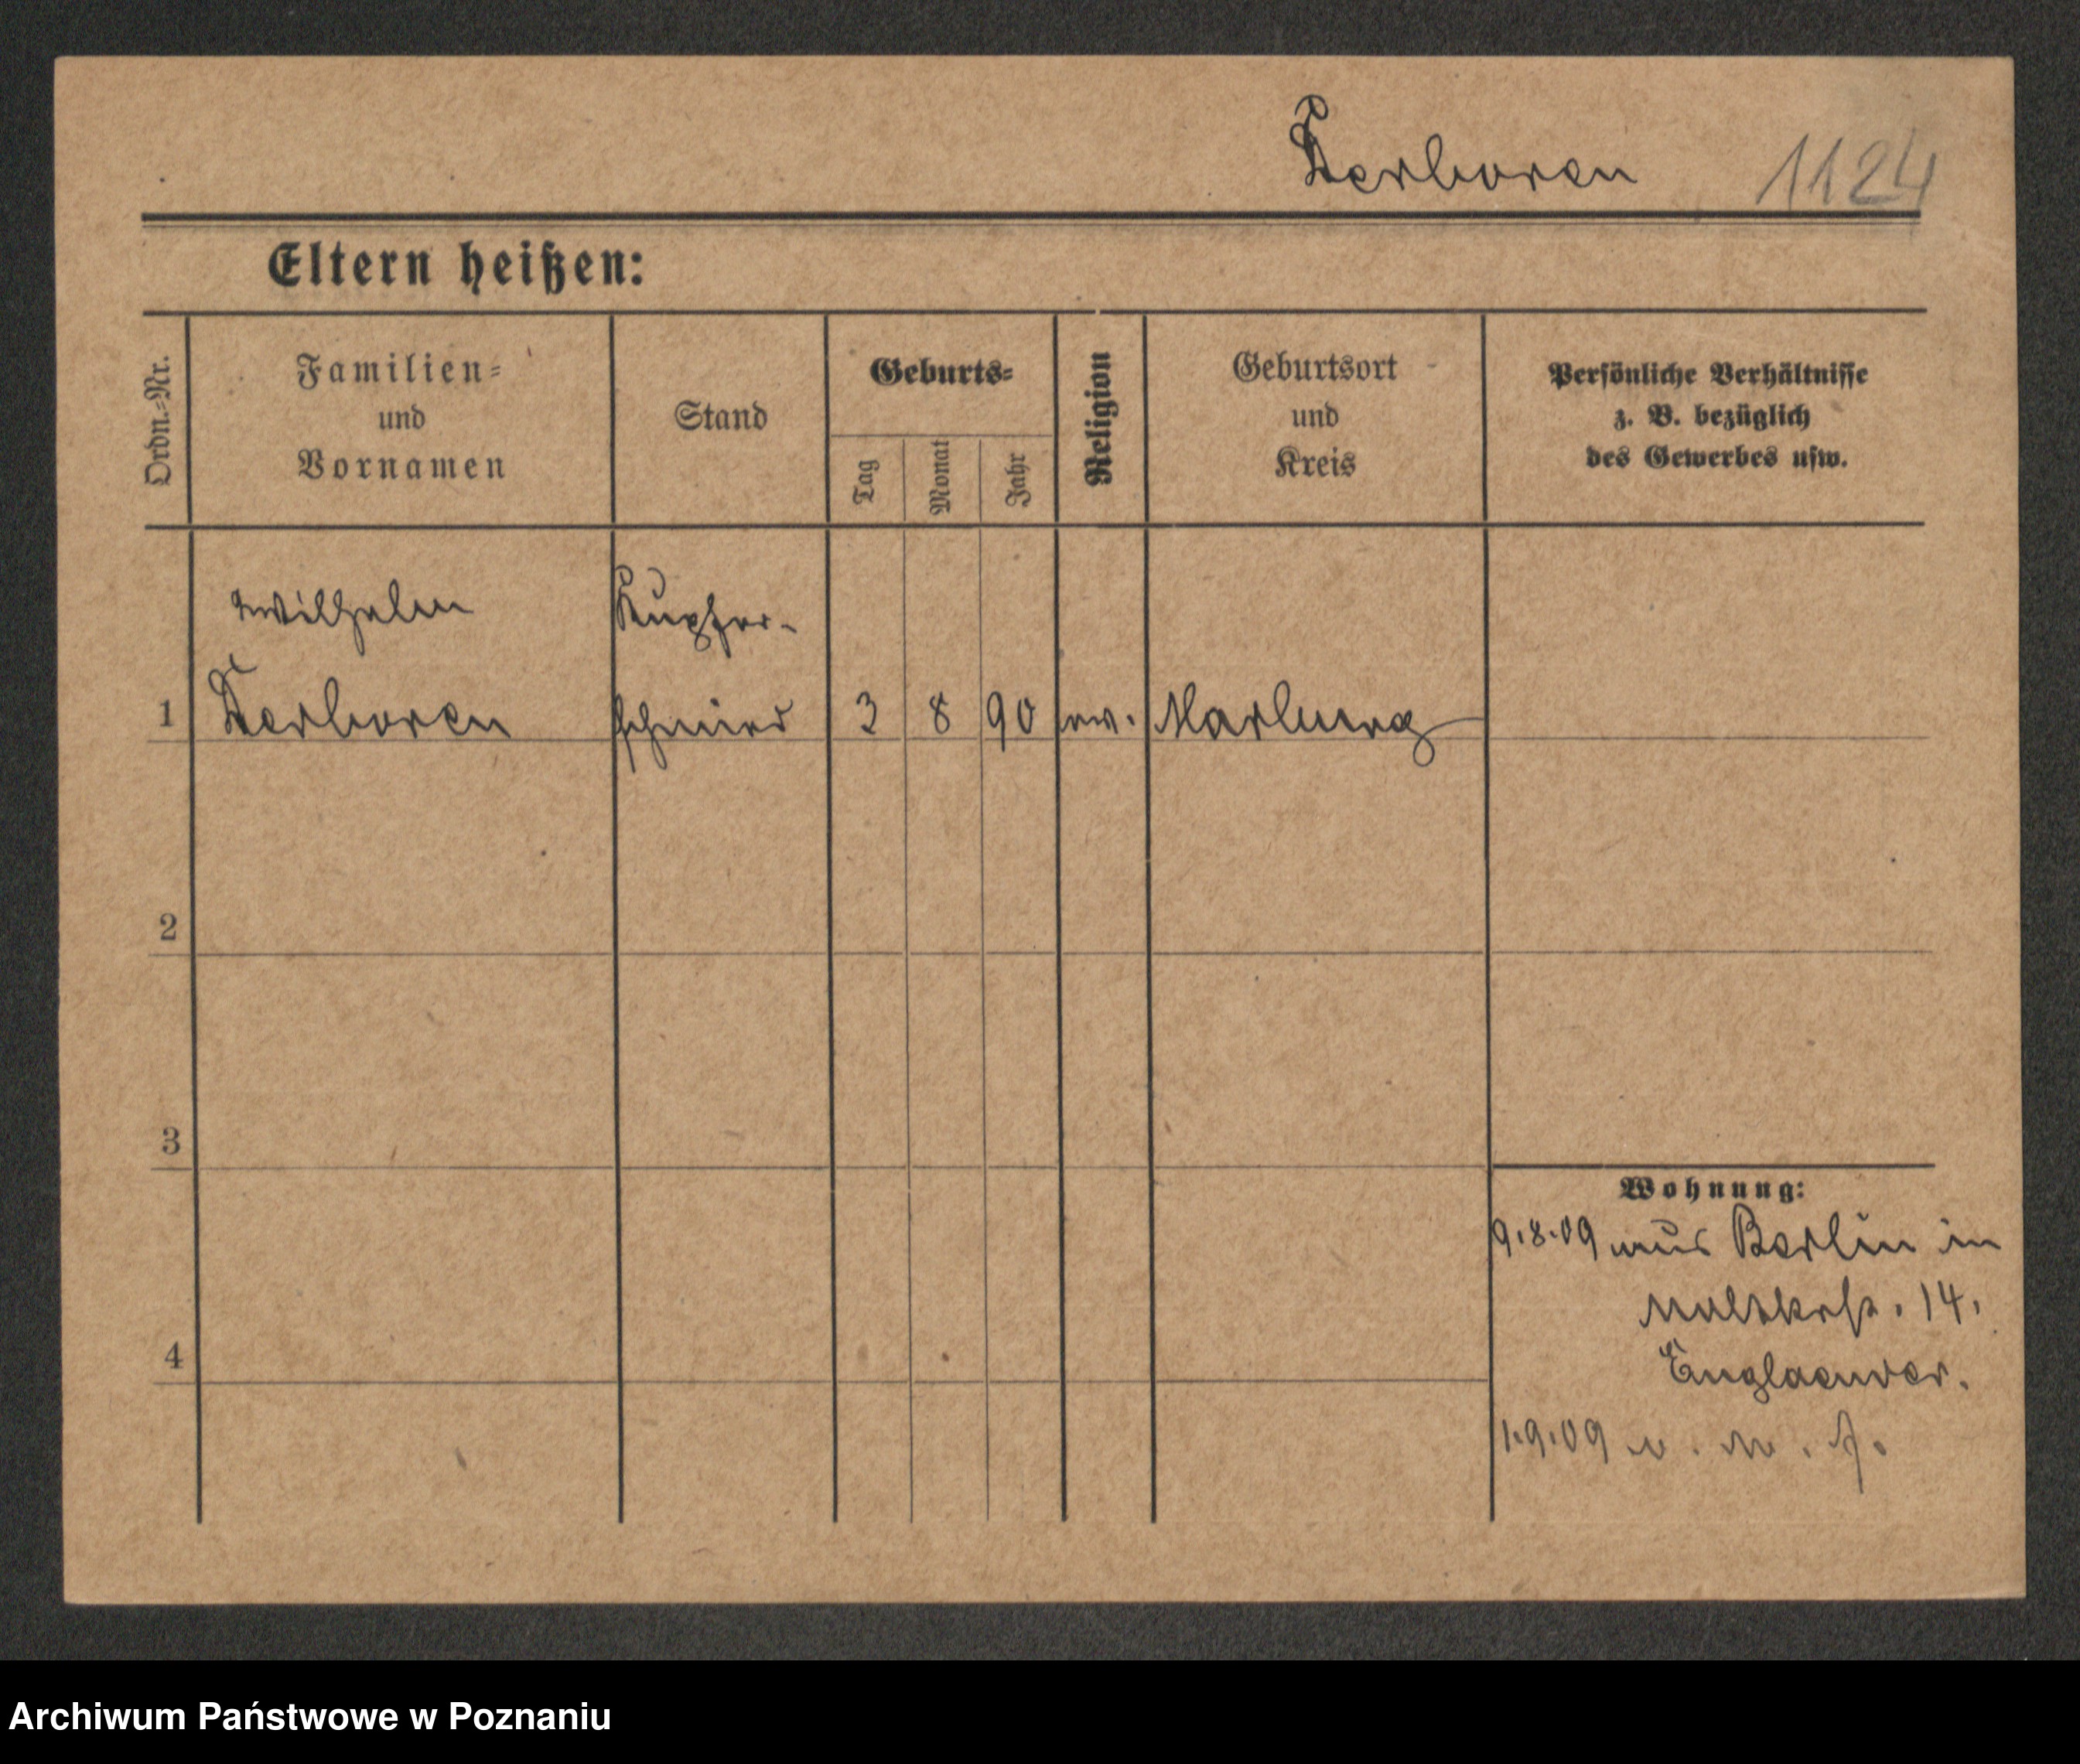 Kerboren 1124
Eltern heißen:
Ordn.-Nr.
Familien-
und
Vornamen
Stand
Geburts-
Tag
Monat
Jahr
Religion
Geburtsort
und
Kreis
Persönliche Verhältnisse
z. B. bezüglich
des Gewerbes usw.
Wilhelm Kupfer-
1 Kerboren schmied 3 8 90 ev. Marburg
2
3
4
Wohnung:
9.8.09 aus Berlin in
14.
Englaender.
1.9.09
Archiwum Państwowe w Poznaniu